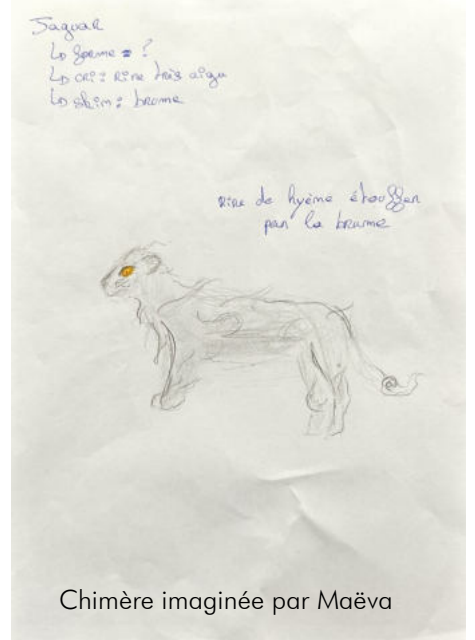 Jaguar
↳ forme = ?
↳ cri : rire très aigu
↳ skin : brume
rire de hyème étouffer
par la brume
Chimère imaginée par Maëva